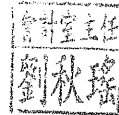 會計室主任
劉秋瑞